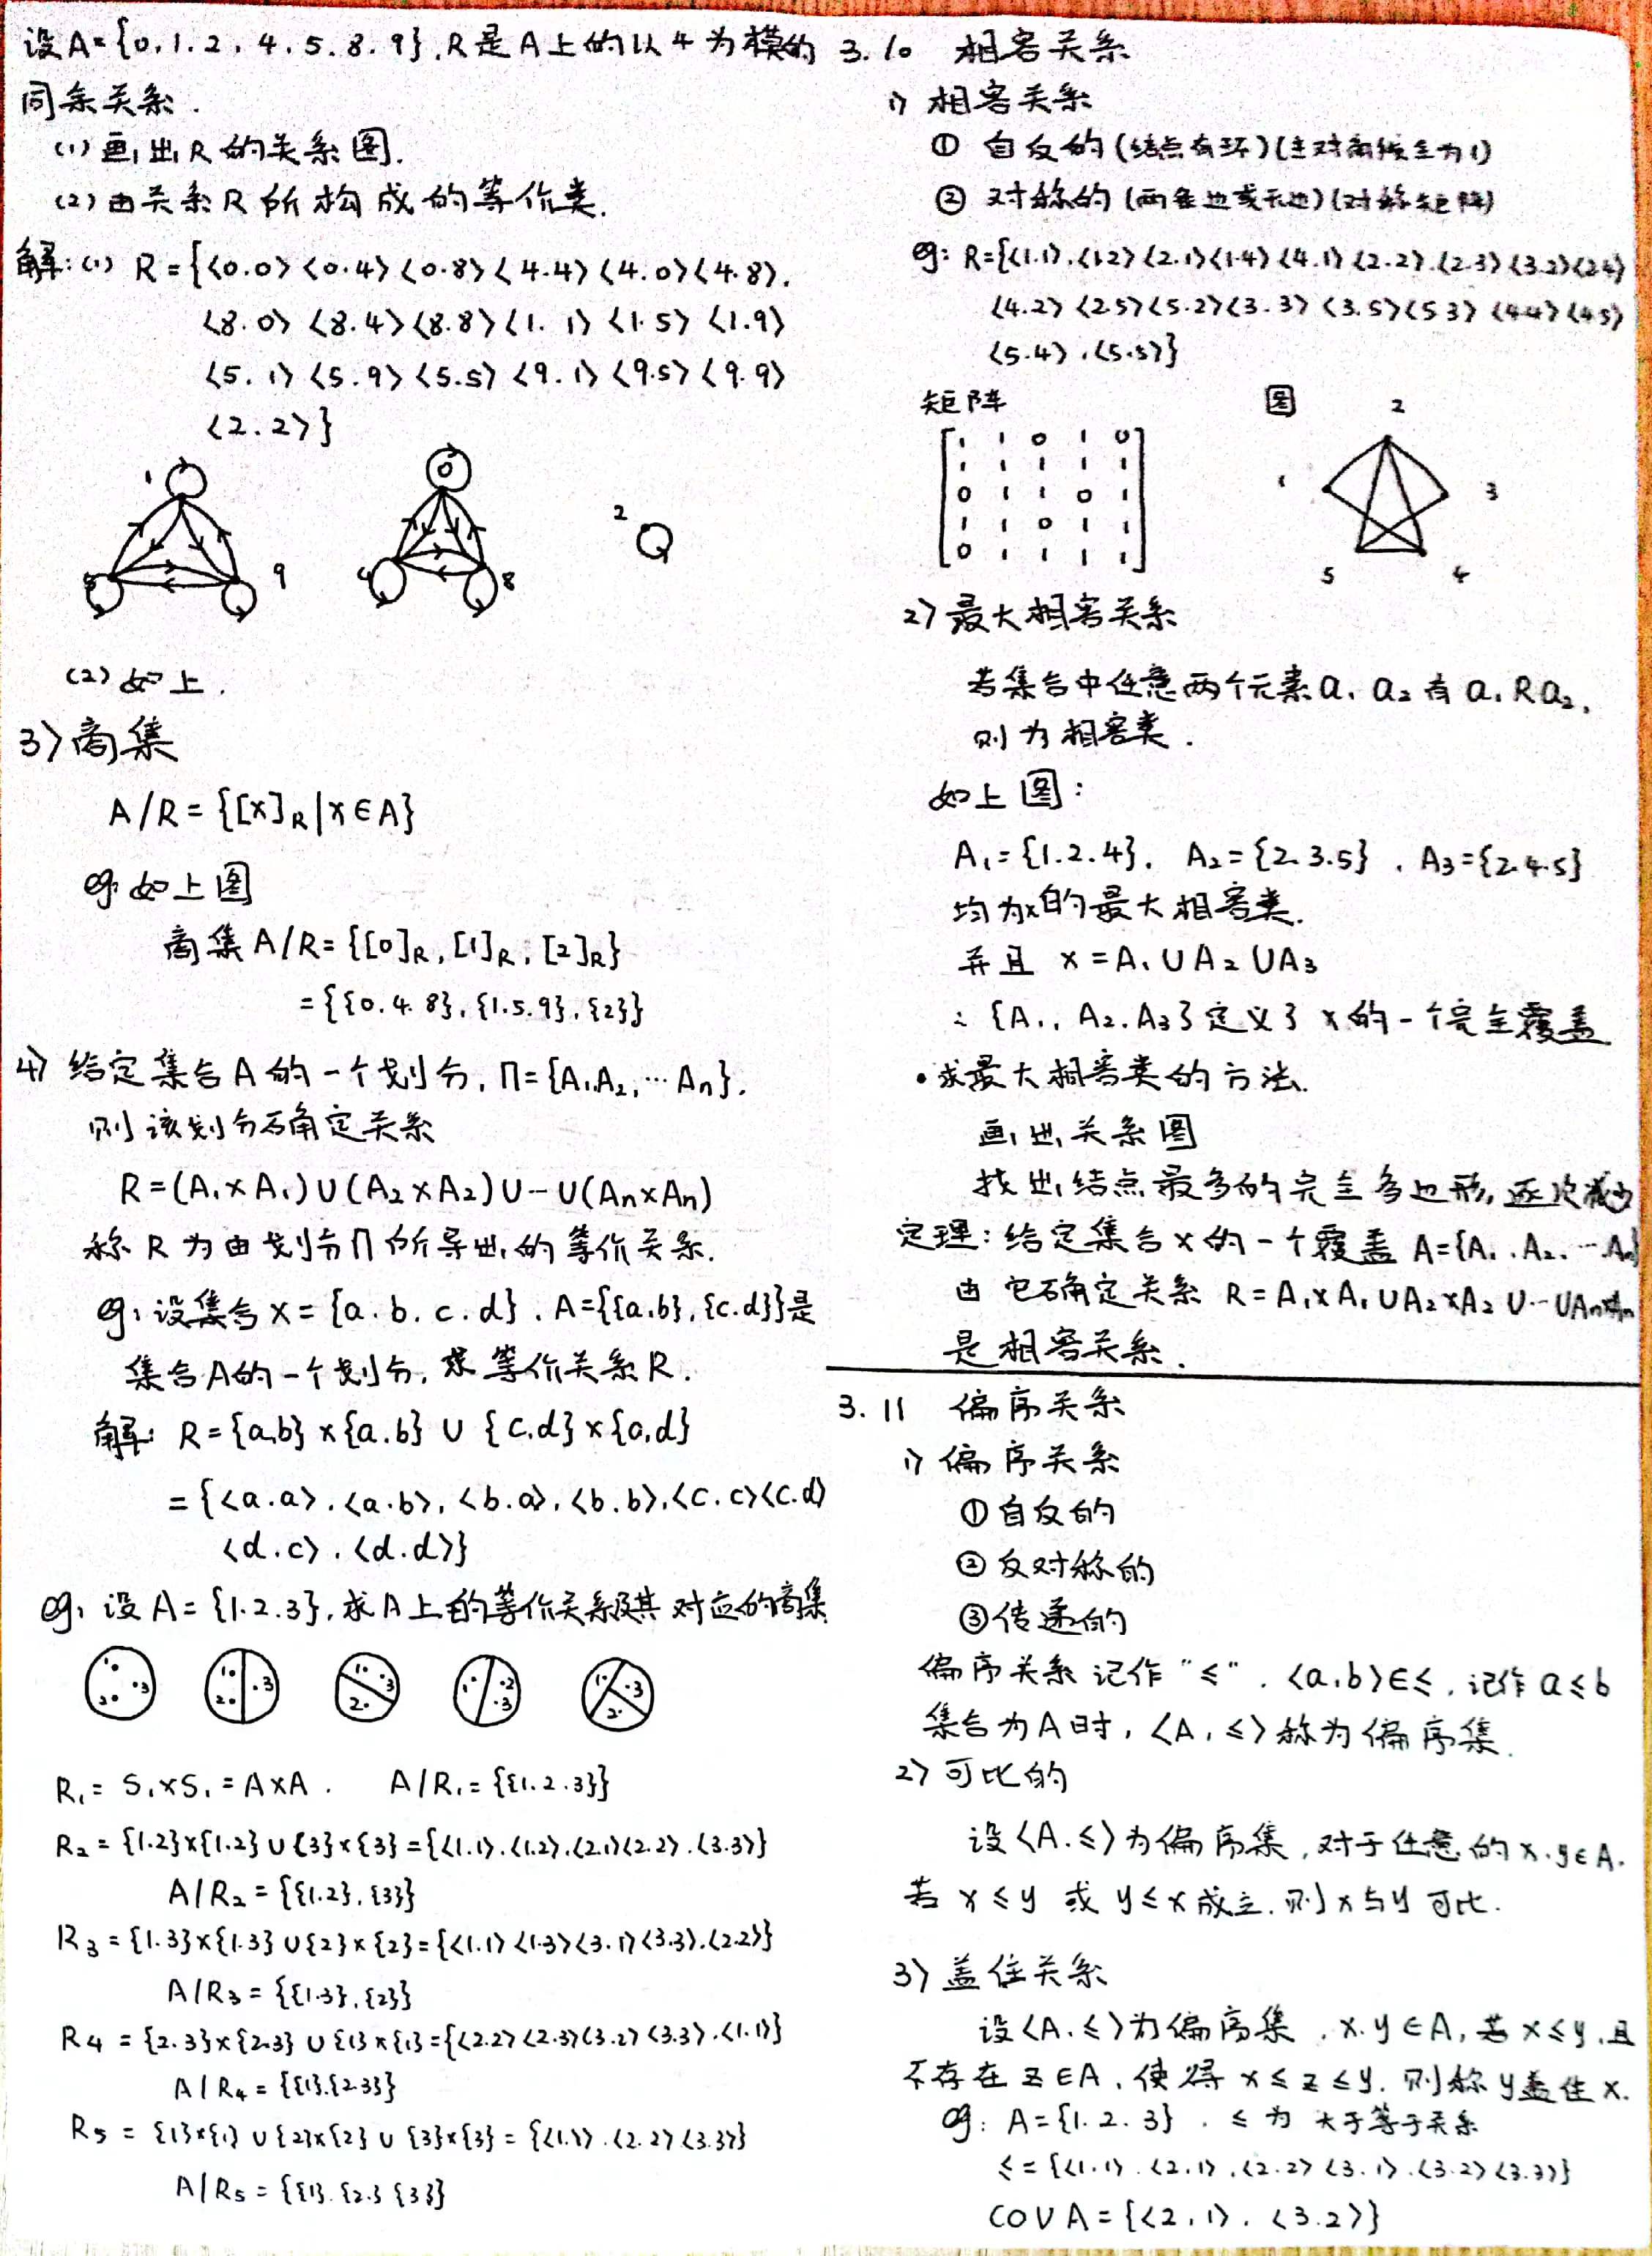 设A={0.1.2.4.5.8.9}.R是A上的以4为模的
同余关系.
(1)画出R的关系图.
(2)由关系R所构成的等价类.
解:(1) R={<0.0><0.4><0.8><4.4><4.0><4.8>.
<8.0><8.4><8.8><1.1><1.5><1.9>
<5.1><5.9><5.5><9.1><9.5><9.9>
<2.2>}
1 5 9 0 4 8 2
(2)如上.
3>商集
A/R={[x]R|x∈A}
eg:如上图
商集A/R={[0]R,[1]R,[2]R}
={{0.4.8},{1.5.9},{2}}
4>给定集合A的一个划分,Π={A₁A₂,…An}.
则该划分确定关系
R=(A₁×A₁)∪(A₂×A₂)∪…∪(An×An)
称R为由划分Π所导出的等价关系.
eg:设集合x={a.b.c.d}.A={{a.b},{c.d}}是
集合A的一个划分,求等价关系R.
解: R={a.b}×{a.b}∪{c,d}×{c,d}
={<a.a>.<a.b>,<b.a>,<b.b>,<c.c><c.d>
<d.c>.<d.d>}
eg:设A={1.2.3},求A上的等价关系及其对应的商集
1 2 3 1 2 3 1 2 3 1 2 3 1 2 3
R₁=S₁×S₁=A×A. A/R₁={{1.2.3}}
R₂={1.2}×{1.2}∪{3}×{3}={<1.1>.<1.2>.<2.1><2.2>.<3.3>}
A/R₂={{1.2},{3}}
R₃={1.3}×{1.3}∪{2}×{2}={<1.1><1.3><3.1><3.3>.<2.2>}
A/R₃={{1.3},{2}}
R₄={2.3}×{2.3}∪{1}×{1}={<2.2><2.3><3.2><3.3>.<1.1>}
A/R₄={{1}.{2.3}}
R₅={1}×{1}∪{2}×{2}∪{3}×{3}={<1.1>.<2.2><3.3>}
A/R₅={{1}.{2}{3}}
3.10 相容关系
1>相容关系
① 自反的(结点有环)(主对角线全为1)
② 对称的(两条边或无边)(对称矩阵)
eg: R={<1.1>.<1.2><2.1><1.4><4.1><2.2>.<2.3><3.2><2.4>
<4.2><2.5><5.2><3.3><3.5><5.3><4.4><4.5>
<5.4>.<5.5>}
矩阵 图
1 1 0 1 0
1 1 1 1 1
0 1 1 0 1
1 1 0 1 1
0 1 1 1 1
2 1 3 5 4
2>最大相容关系
若集合中任意两个元素a₁a₂有a₁Ra₂,
则为相容类.
如上图:
A₁={1.2.4}. A₂={2.3.5}. A₃={2.4.5}
均为x的最大相容类.
并且 x=A₁∪A₂∪A₃
∴{A₁.A₂.A₃}定义了x的一个完全覆盖
•求最大相容类的方法.
画出关系图
找出结点最多的完全多边形,逐次减少
定理:给定集合x的一个覆盖A={A₁.A₂.…An}
由它确定关系 R=A₁×A₁∪A₂×A₂∪…∪An×An
是相容关系.
3.11 偏序关系
1>偏序关系
①自反的
②反对称的
③传递的
偏序关系记作"≤".<a,b>∈≤,记作a≤b
集合为A时,<A,≤>称为偏序集.
2>可比的
设<A.≤>为偏序集,对于任意的x.y∈A.
若x≤y或y≤x成立.则x与y可比.
3>盖住关系
设<A.≤>为偏序集,x.y∈A,若x≤y,且
不存在z∈A,使得x≤z≤y.则称y盖住x.
eg: A={1.2.3}.≤为大于等于关系
≤={<1.1>.<2.1>.<2.2><3.1>.<3.2><3.3>}
COVA={<2,1>.<3.2>}